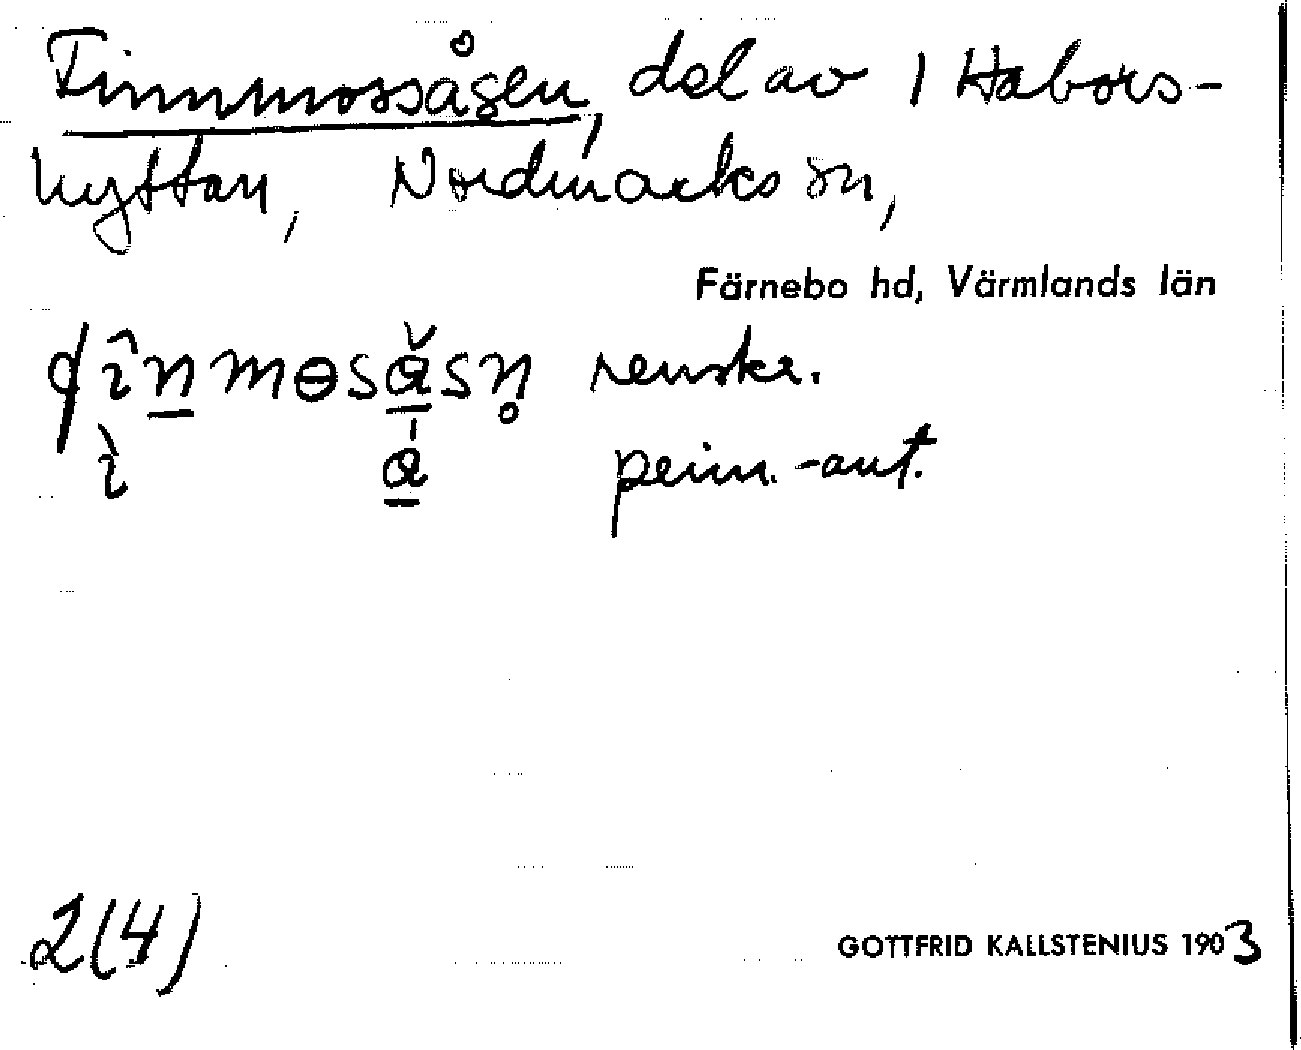 Finnmossåsen, del av 1 Habors-
hyttan, Nordmarks sn,
Färnebo hd, Värmlands län
renskr.
prim.-ant.
2(4)
GOTTFRID KALLSTENIUS 1903